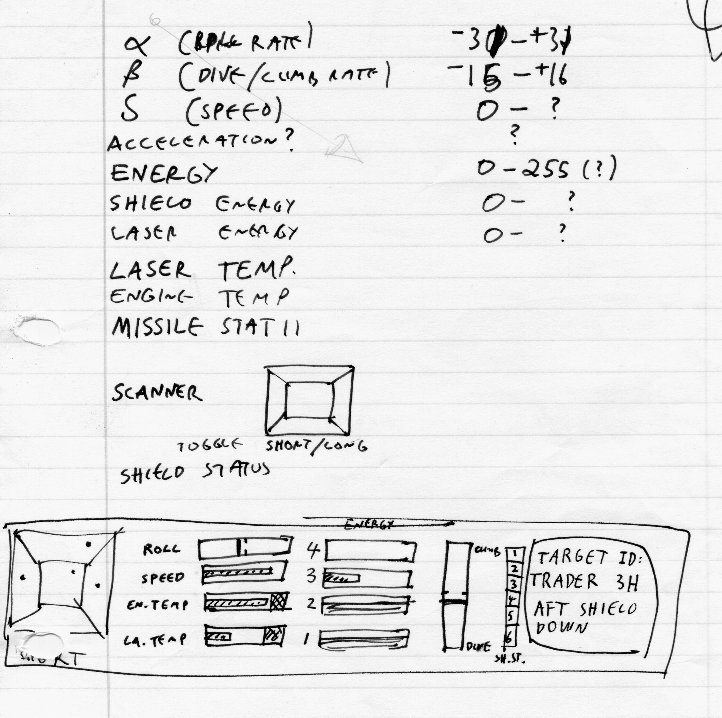 α (ROLL RATE) -31 - +31
β (DIVE/CLIMB RATE) -15 - +16
S (SPEED) 0 - ?
ACCELERATION? ?
ENERGY 0 - 255 (?)
SHIELD ENERGY 0 - ?
LASER ENERGY 0 - ?
LASER TEMP.
ENGINE TEMP
MISSILE STATII
SCANNER
TOGGLE SHORT/LONG
SHIELD STATUS
ENERGY
ROLL 4
SPEED 3
EN.TEMP 2
LA.TEMP 1
SHORT
CLIMB
DIVE
1
2
3
4
5
6
SH.ST.
TARGET ID:
TRADER 3H
AFT SHIELD
DOWN